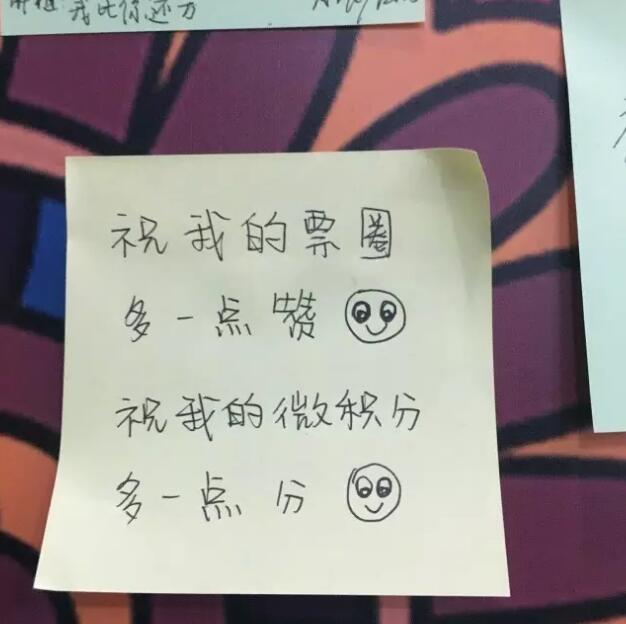 我比你还方
祝我的票圈
多一点赞
祝我的微积分
多一点分